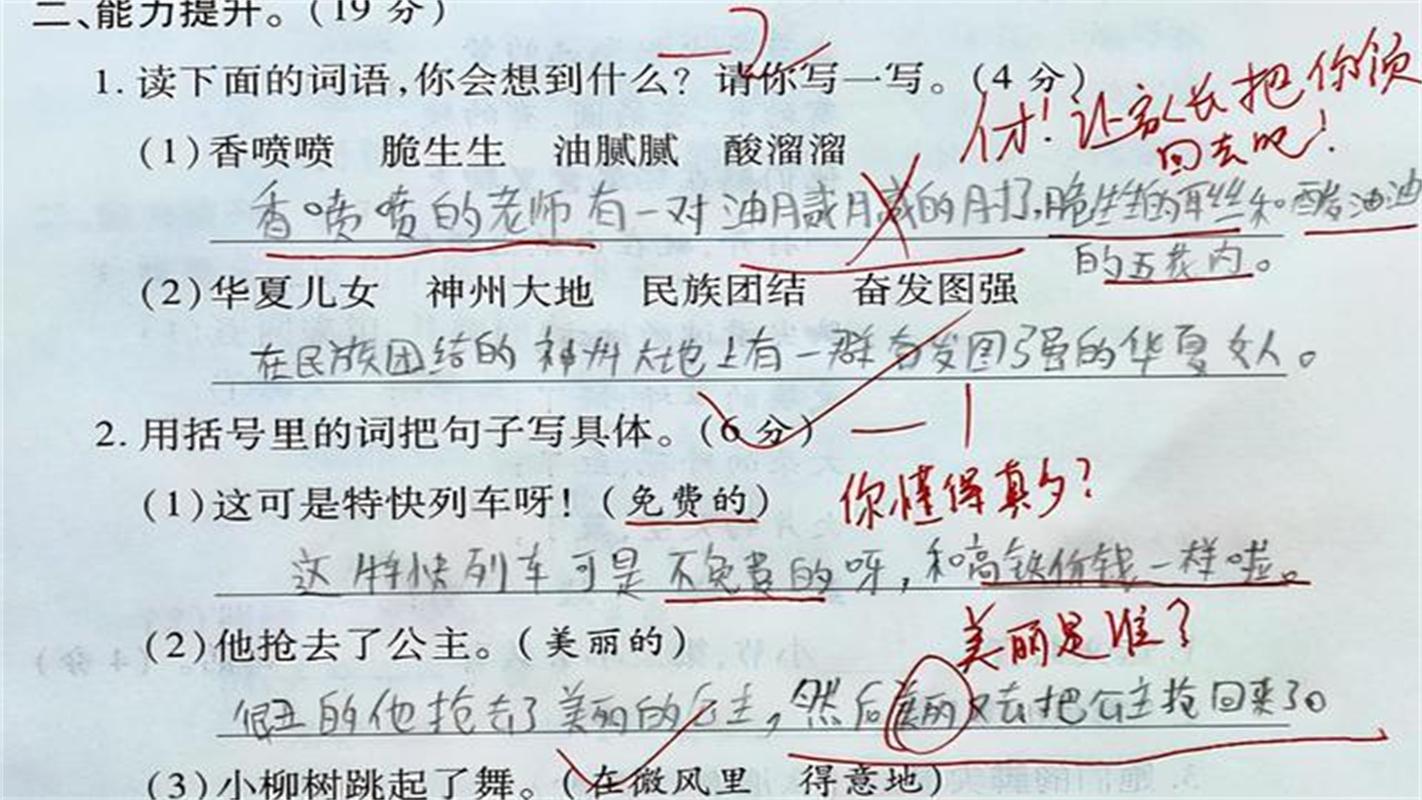 二、能力提升。(19 分)
-2
1. 读下面的词语,你会想到什么?请你写一写。(4 分)
人才!让家长把你领
回去吧!
(1)香喷喷 脆生生 油腻腻 酸溜溜
香喷喷的老师有一对油腻腻的肘子,脆生生的耳丝和酸油油
的五花肉。
(2)华夏儿女 神州大地 民族团结 奋发图强
在民族团结的神州大地上有一群奋发图强的华夏女人。
2. 用括号里的词把句子写具体。(6 分)
-1
(1)这可是特快列车呀!(免费的)
你懂得真多?
这特快列车可是不免费的呀,和高铁价钱一样啦。
(2)他抢去了公主。(美丽的)
美丽是谁?
很丑的他抢去了美丽的公主,然后美丽又去把公主抢回来了。
(3)小柳树跳起了舞。(在微风里 得意地)